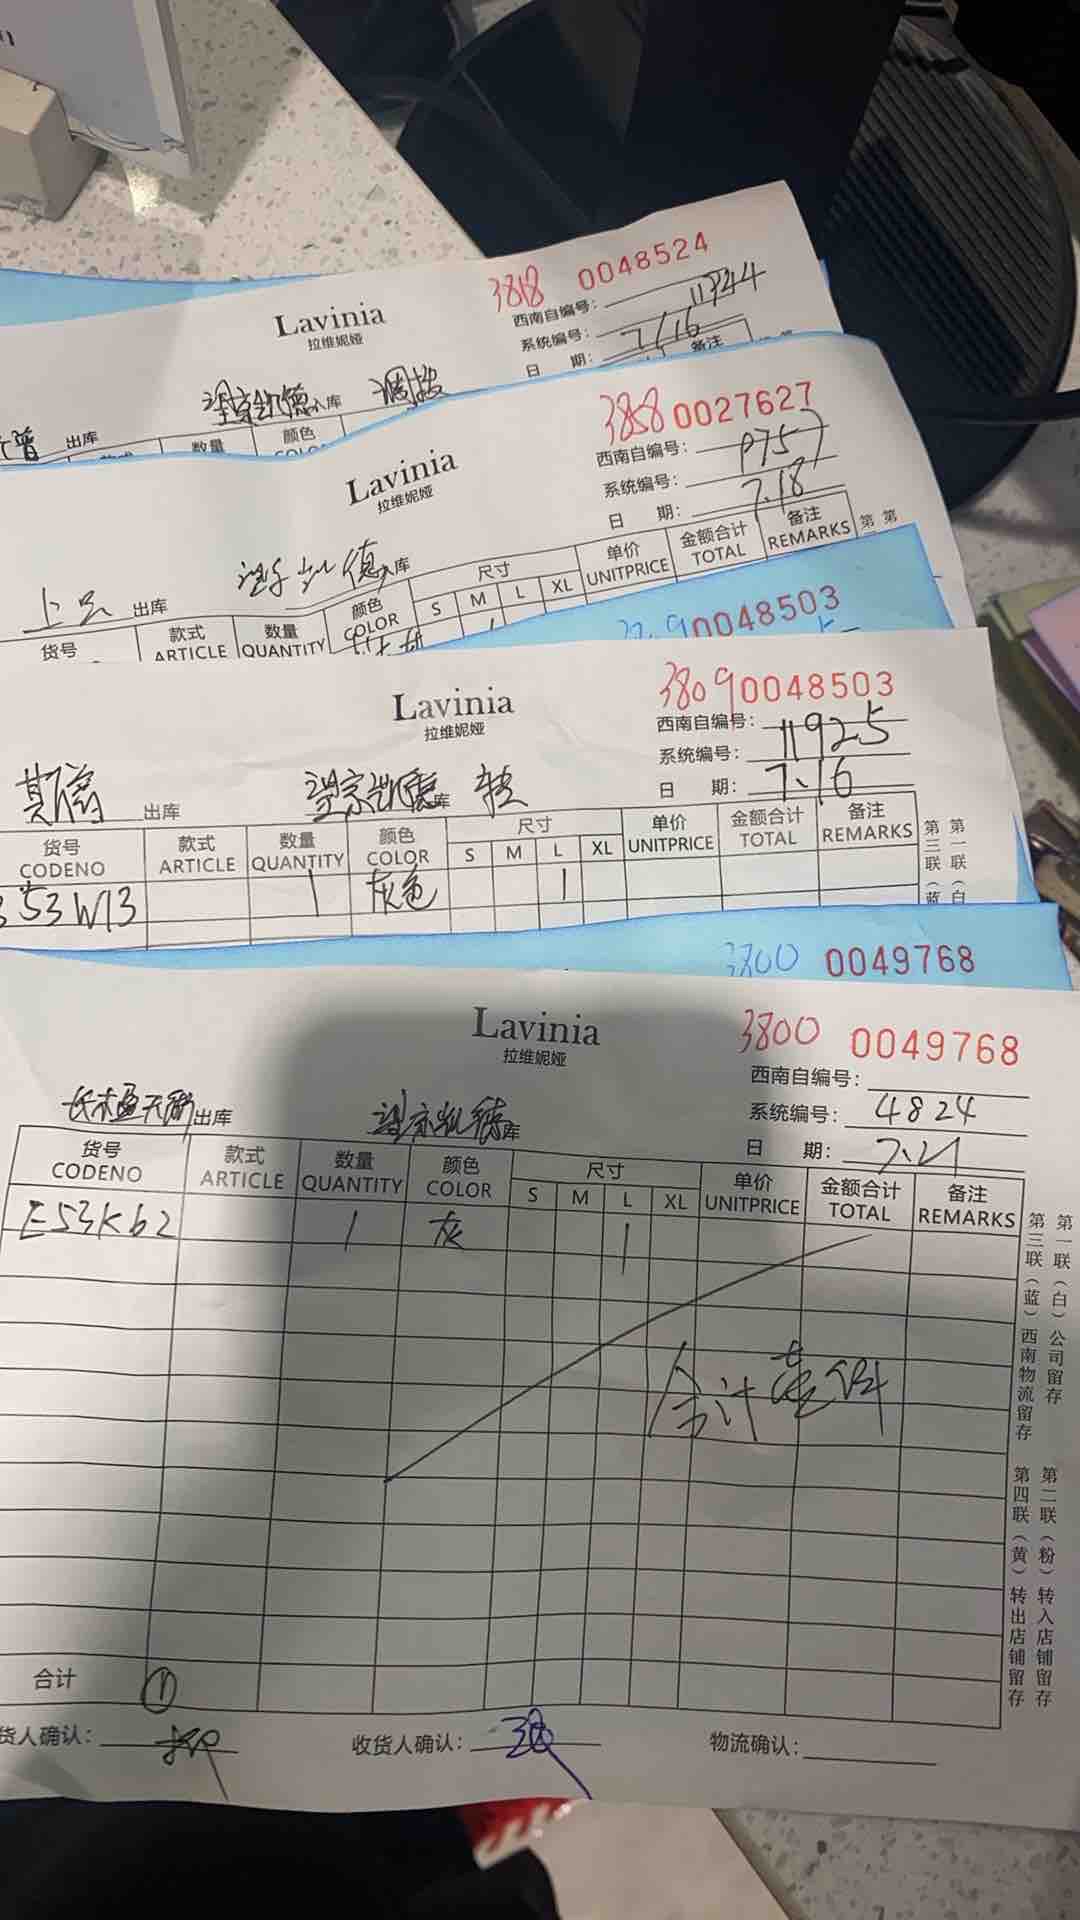 3818 0048524
Lavinia
拉维妮娅
西南自编号:
系统编号: 11944
日 期: 7/16
出库 望京凯德入库 调拨
数量 颜色 备注
3858 0027627
Lavinia
拉维妮娅
西南自编号:
系统编号: 9757
日 期: 7.18
出库 望京凯德入库
货号 款式 ARTICLE 数量 QUANTITY 颜色 COLOR 尺寸 S M L XL 单价 UNITPRICE 金额合计 TOTAL 备注 REMARKS 第 第
1
0048503
3809 0048503
Lavinia
拉维妮娅
西南自编号:
系统编号: 11925
日 期: 7.16
出库 望京凯德库 转
货号 CODENO 款式 ARTICLE 数量 QUANTITY 颜色 COLOR 尺寸 S M L XL 单价 UNITPRICE 金额合计 TOTAL 备注 REMARKS
53W13 1 灰色 1
第一联(白
第三联(蓝
3800 0049768
3800 0049768
Lavinia
拉维妮娅
西南自编号:
系统编号: 4824
日 期: 7.21
出库 望京凯德库
货号 CODENO 款式 ARTICLE 数量 QUANTITY 颜色 COLOR 尺寸 S M L XL 单价 UNITPRICE 金额合计 TOTAL 备注 REMARKS
E53K62 1 灰 1
合计壹件
第一联(白)公司留存 第二联(粉)转入店铺留存
第三联(蓝)西南物流留存 第四联(黄)转出店铺留存
合计 ①
货人确认: 收货人确认: 物流确认: